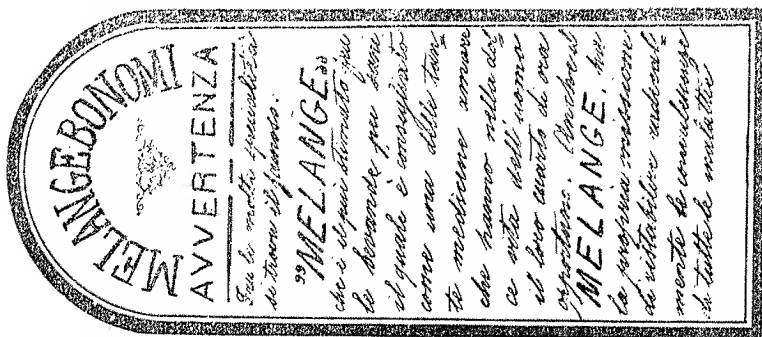 MELANGE BONOMI
AVVERTENZA
Fra le molte specialità
si trova il famoso:
"MELANGE„
che è il più stimato fra
le bevande più sane
il quale è consigliato
come una delle tan=
te medicine amare
che hanno nella dol
ce vita dell'uomo
il loro quarto di ora
opportuno. Anche il
MELANGE. ha
la propria missione
di ristabilire radical=
mente la convalescenza
di tutte le malattie